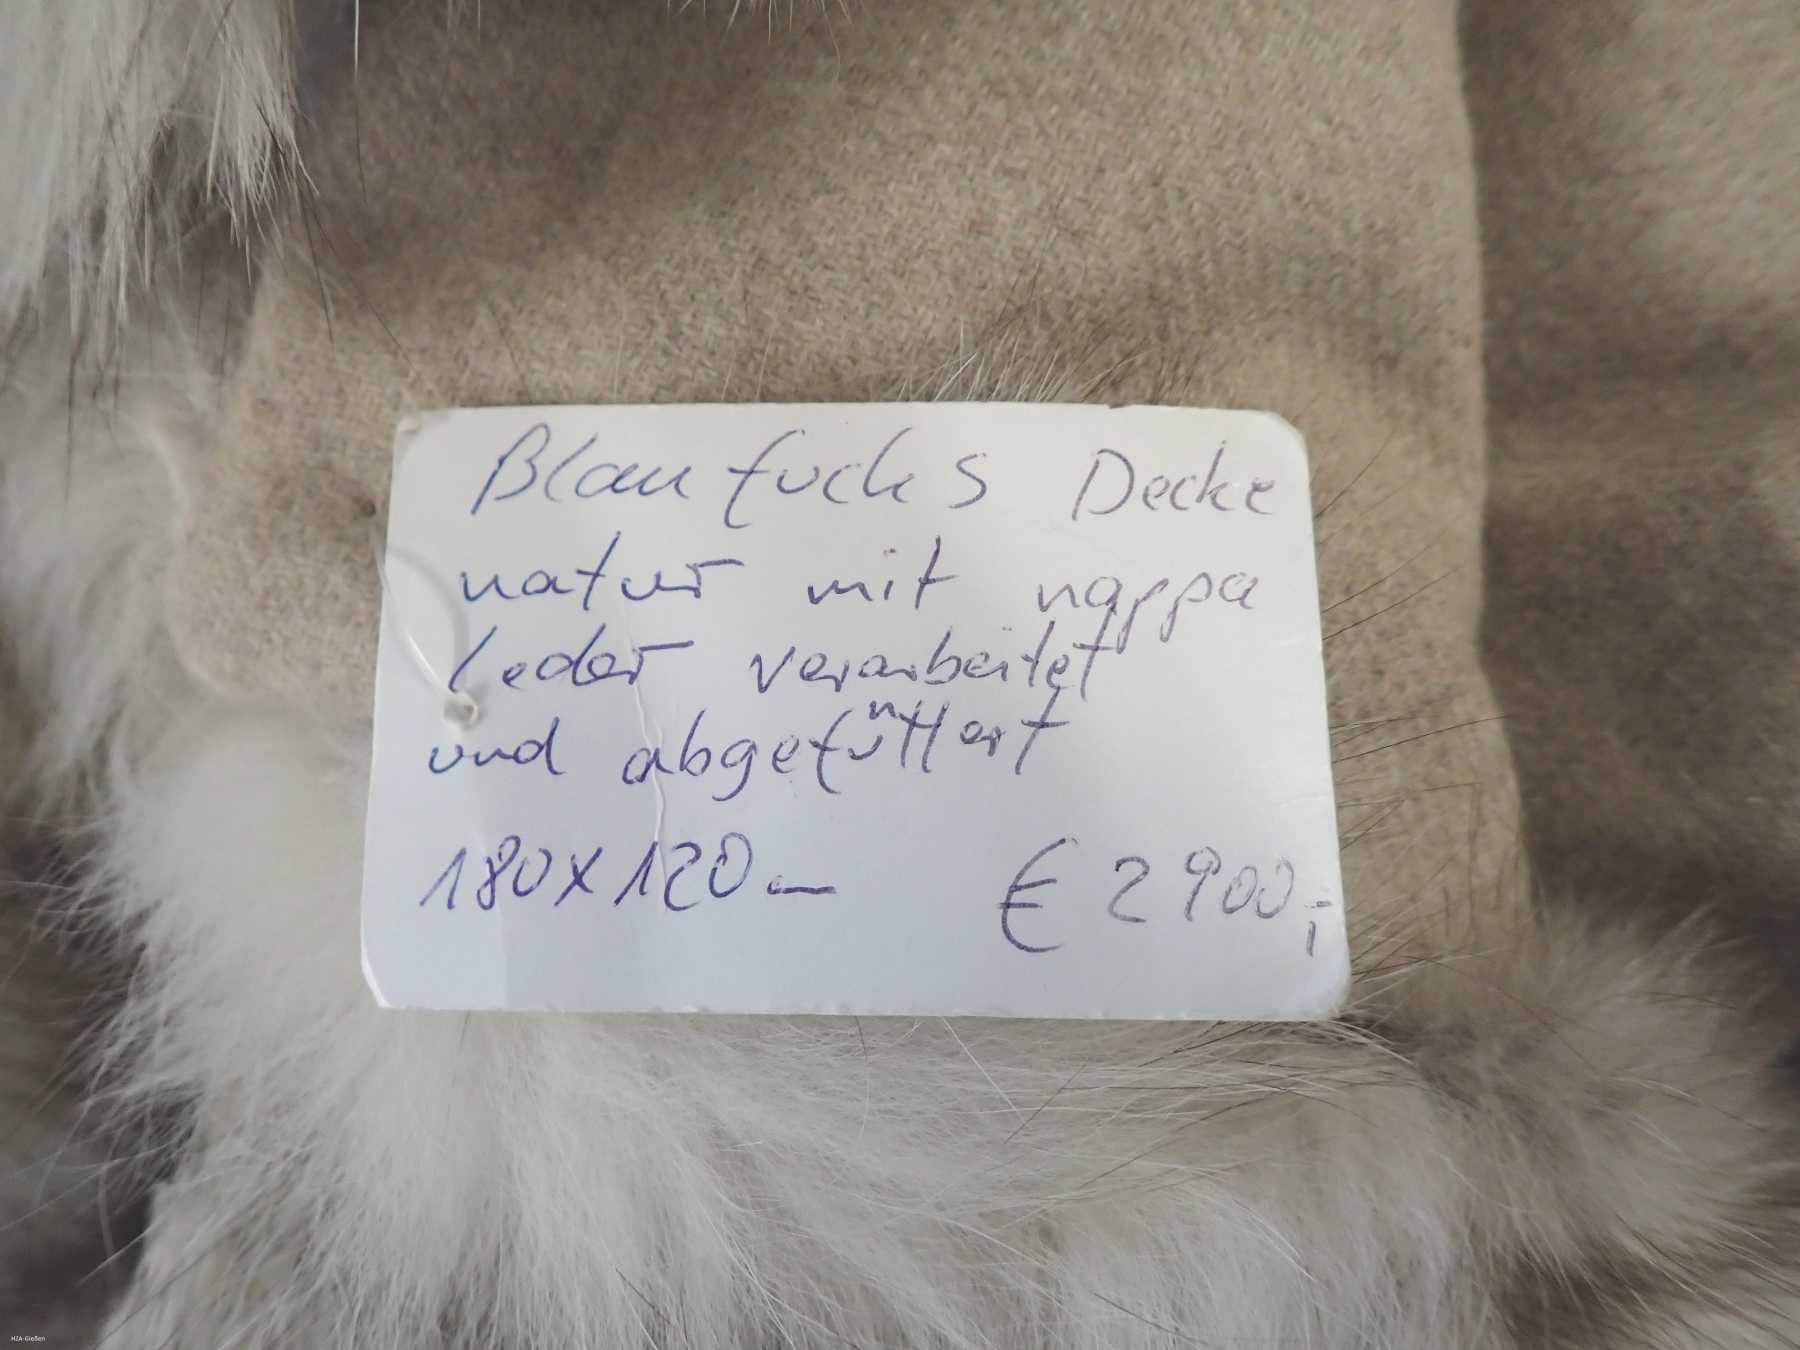 Blaufuchs Decke
natur mit nappa
leder verarbeitet
und abgefüttert
180x120– € 2900,-
HZA-Gießen